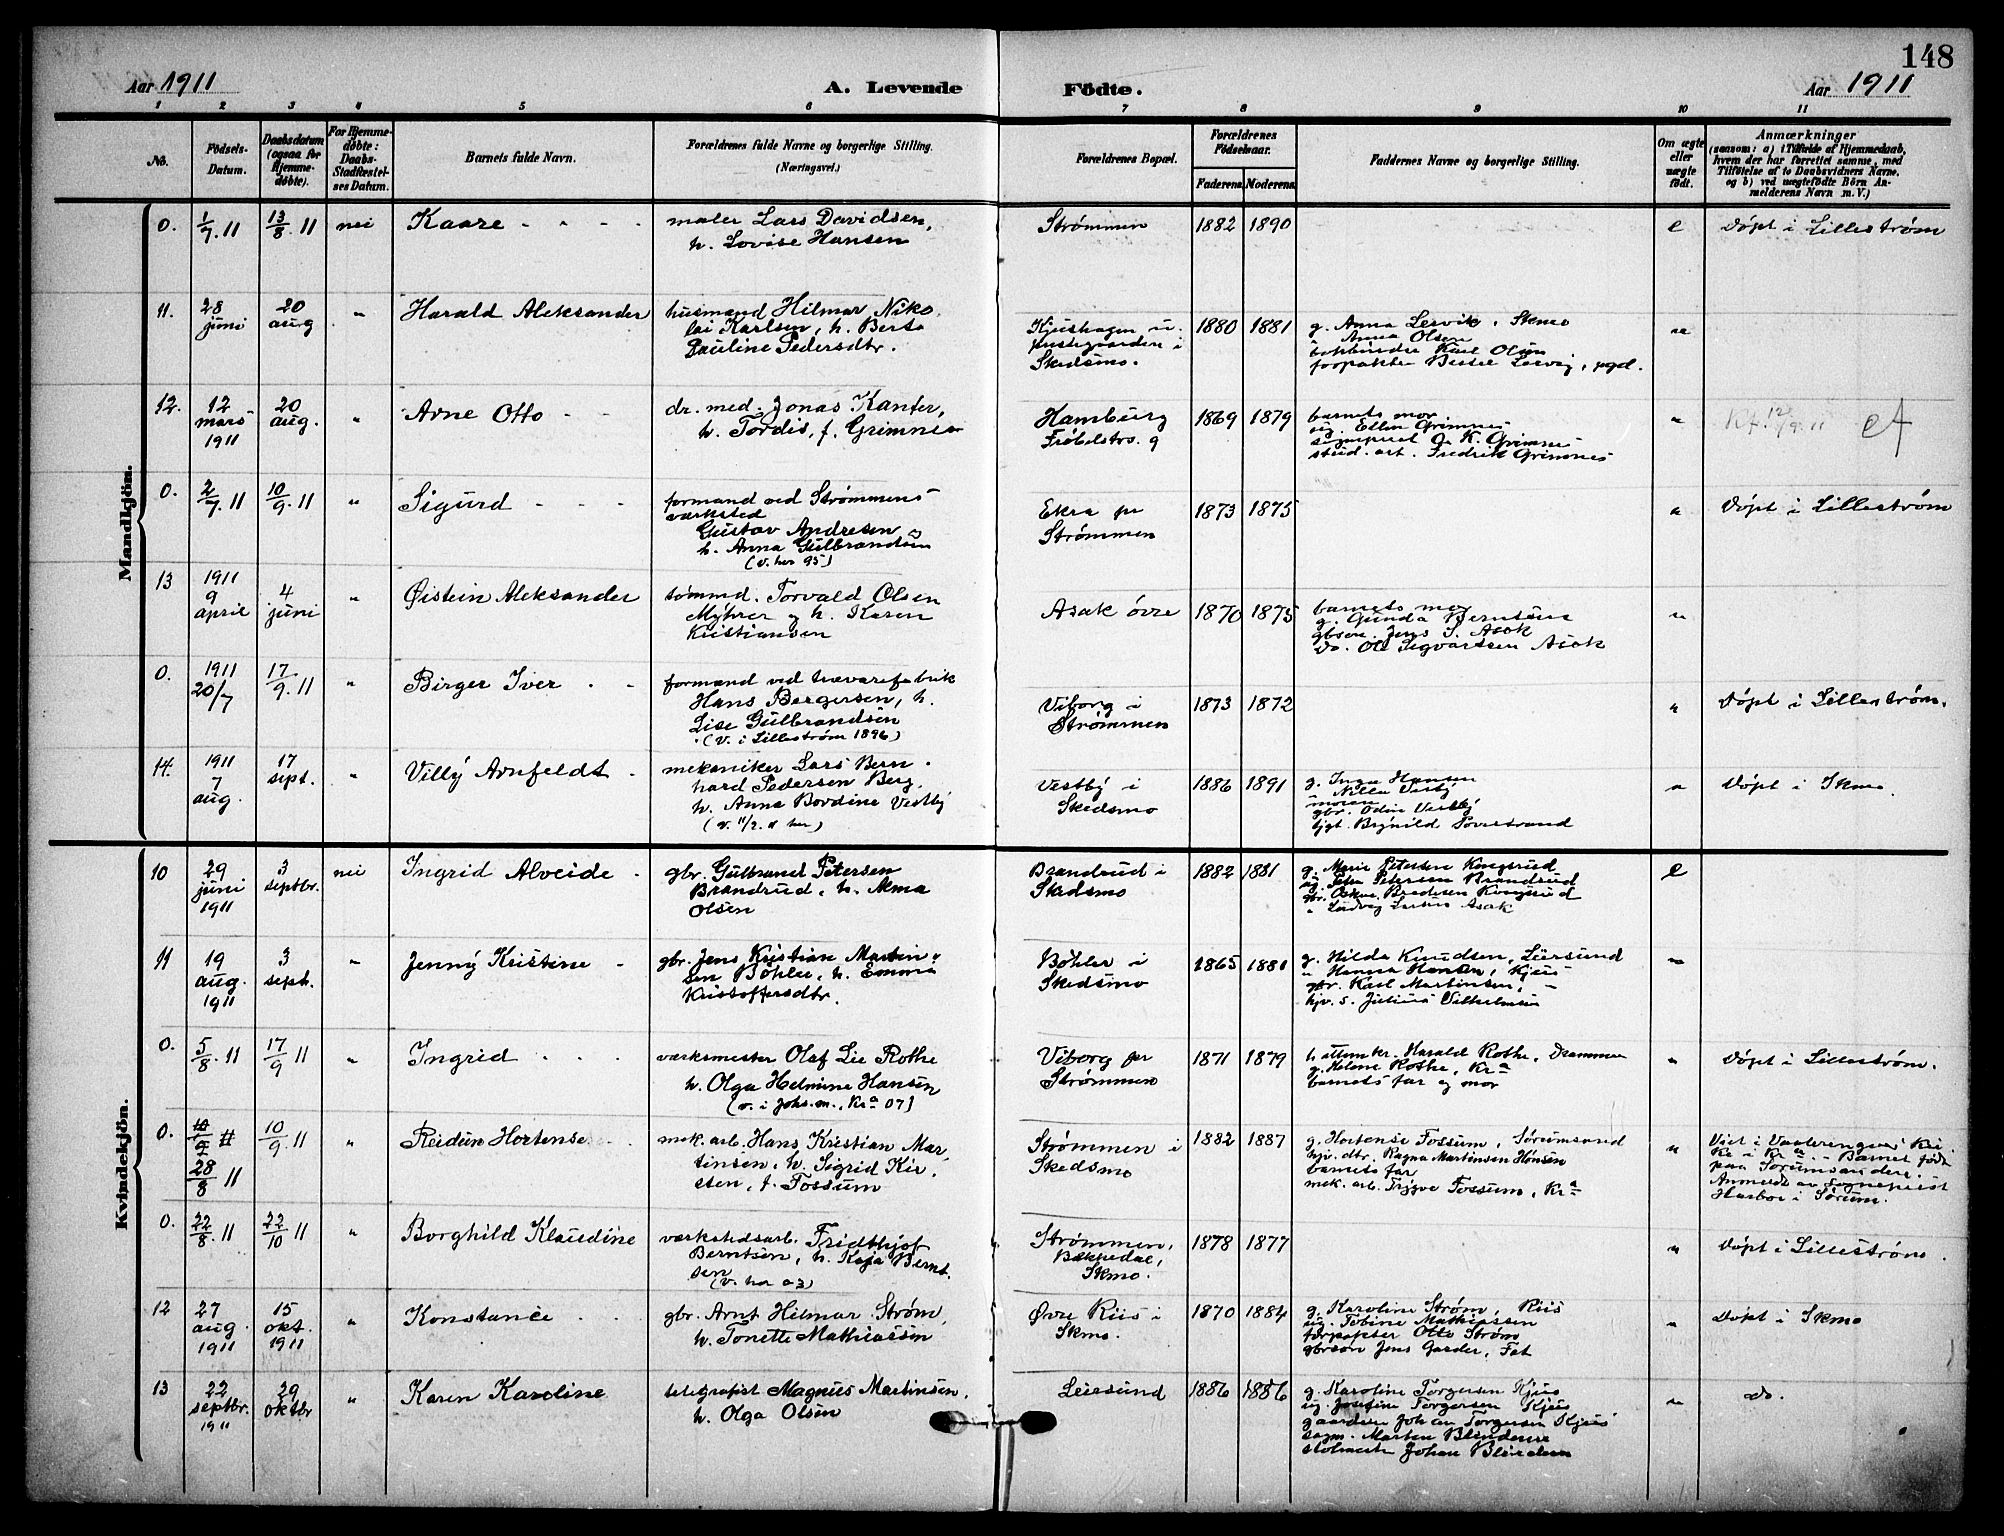 148
Aar 1911
A. Levende Födte.
Aar 1911
1 2 3 4 5 6 7 8 9 10 11
No.
Födsels-Datum.
Daabsdatum (ogsaa for Hjemme-døbte).
For Hjemme-døbte: Daabs-Stadfæstel-ses Datum.
Barnets fulde Navn.
Forældrenes fulde Navne og borgerlige Stilling.
(Næringsvei.)
Forældrenes Bopæl.
Forældrenes Födselsaar.
Faderens. Moderens.
Faddernes Navne og borgerlige Stilling.
Om ægte eller uægte født.
Anmærkninger
(saasom: a) i Tilfælde af Hjemmedaab, hvem der har forrettet samme, med Tilføielse af to Daabsvidners Navne, og b) ved uægtefödte Börn Anmelderens Navn m. V.)
Mandkjön.
0. 1/7. 11 13/8. 11 nei Kaare maler Lars Davidsen, Strømmen 1882 1890 e Døpt i Lillestrøm
h. Lovise Hansen
11. 28 juni 20 aug " Harald Aleksander husmand Hilmar Niko
lai Karlsen, h. Berta
Pauline Pedersdtr.
Kjushagen u.
prestegaarden i
Skedsmo.
1880 1881
g. Anna Lesvik, Skmo
" Anna Olsen
bokbinder Karl Olsen
12. 12 mars 1911 20 aug. " Arne Otto dr. med. Jonas Kanter,
h. Tordis, f. Grimnes
Hamburg
Frøbelstrs. 9
1869 1879
barnets mor
ug. Ellen Grimnes
sogneprest O. K. Grimnes
stud. art. Fredrik Grimnes
0. 2/7. 11 10/9. 11 " Sigurd formand ved Strømmens
værksted
Gustav Andresen
h. Anna Gulbrandsen
(v. her 95)
Ekra pr
Strømmen
1873 1875 Døpt i Lillestrøm
13 1911 9 april 4 juni " Øistein Aleksander tømmd. Torvald Olsen
Myhrer og h. Karen
Kristiansen
Asak øvre 1870 1875
barnets mor
g. Gunda Berntsen
gbsøn. Jens S. Asak
do. Ole Sigvartsen Asak
0. 1911 20/7 17/9. 11 " Birger Iver formand ved trævarefabrik
Hans Bergersen, h.
Lise Gulbrandsen
(v. i Lillestrøm 1896)
Viborg i
Strømmen
1873 1872 " Døpt i Lillestrøm.
14. 1911 7 aug. 17 sept. " Villy Arnfeldt mekaniker Lars Bern
hard Pedersen Berg,
h. Anna Bordine Vestby
(v. 11/2. 11 her)
Vestby i
Skedsmo
1886 1891
g. Inga Hansen
moren
gbr. Odin Vestby
Døpt i Skmo.
Kvindekjön.
10 29 juni 1911 3 septbr. nei Ingrid Alveide gbr. Gulbrand Petersen
Brandrud, h. Alma
Olsen
Brandrud i
Skedsmo
1882 1881
g. Marie Petersen Kongsrud
ug. Peter Petersen Brandrud
" Ludvig Larsen Asak
e
11 19 aug. 1911 3 sept. " Jenny Kristine gbr. Jens Kristian Martin
sen Bøhler, h. Emma
Kristoffersdtr.
Bøhler i
Skedsmo
1865 1881
g. Hilda Knudsen, Leirsund
" Hanna Hansen, Kjus
gbr. Karl Martinsen, "
hjv. s. Julius Vilhelmsen
0. 5/8. 11 17/9 11 " Ingrid værksmester Olaf Lie Rothe
h. Olga Helmine Hansen
(v. i Johs. m., Kr.a 07)
Viborg pr
Strømmen
1871 1879
Harald Rothe, Drammen
g. Helene Rothe, Kra
barnets far og mor
" Døpt i Lillestrøm.
0. 28/8 11 10/9. 11 " Reidun Hortense mek. arb. Hans Kristian Mar
tinsen, h. Sigrid Kir
sten, f. Fossum
Strømmen i
Skedsmo
1882 1887
g. Hortense Fossum, Sørumsand
hjv. dtr. Ragna Martinsen Hønsen
barnets far
mek. arb. Trygve Fossum, Kra
" Viet i Vaalerengens Kir
ke i Kra. - Barnet født
paa Sørumsanden.
Anmeldt av Sogneprest
Harboe i Sørum.
0. 22/8. 11 22/10 11 " Borghild Klaudine værkstedsarb. Fridthjof
Berntsen, h. Kaja Bernt
sen
(v. her 03)
Strømmen,
Bækkedal,
Skmo.
1878 1877 " Døpt i Lillestrøm.
12 27 aug. 1911 15 okt. 1911 " Konstance gbr. Arnt Hilmar Strøm,
h. Tonette Mathiassen
Øvre Riis i
Skmo.
1870 1884
g. Karoline Strøm, Riis
ug. Tobine Mathiassen
forpakter Otto Strøm
gbrsøn Jens Garder, Fet
" Døpt i Skmo
13 22 septbr. 1911 29 oktbr " Karen Karoline telegrafist Magnus Martinsen,
h. Olga Olsen
Leiesund 1886 1886
g. Karoline Torgersen Kjus
ug. Josefine Torgersen Kjus
gaardbr. Johan Torgersen Kjus
sagm. Marten Blindene
" do.